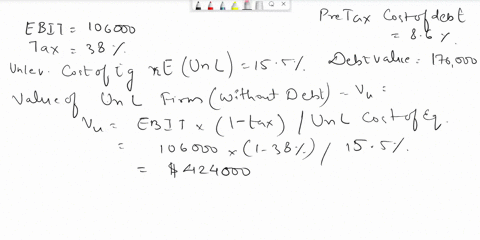 EBIT = 106000
Tax = 38 %
PreTax Cost of debt = 8.6 %
Unlev. Cost of Eq rE (UnL) = 15.5 %
Debt Value : 176,000
Value of UnL Firm (without Debt) - Vu :
Vu = EBIT × (1-tax) / UnL Cost of Eq.
= 106000 × (1-38%) / 15.5 %
= $424000